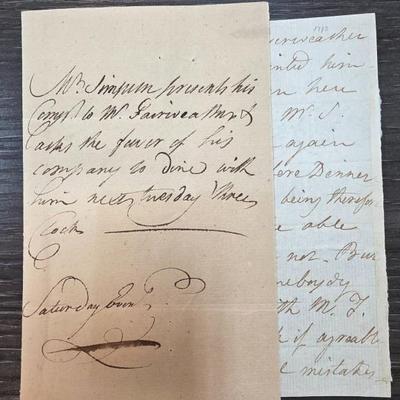 Mr. Simpson presents his
Compts to Mr. Fairweather &
asks the favor of his
company to dine with
him next Tuesday three
Clock
Saturday Eveng
Fairweather
him
here
Mr. S.
again
ere Dinner
being therefor
able
not. But
mebody
th Mr. F.
if agreable
mistakes